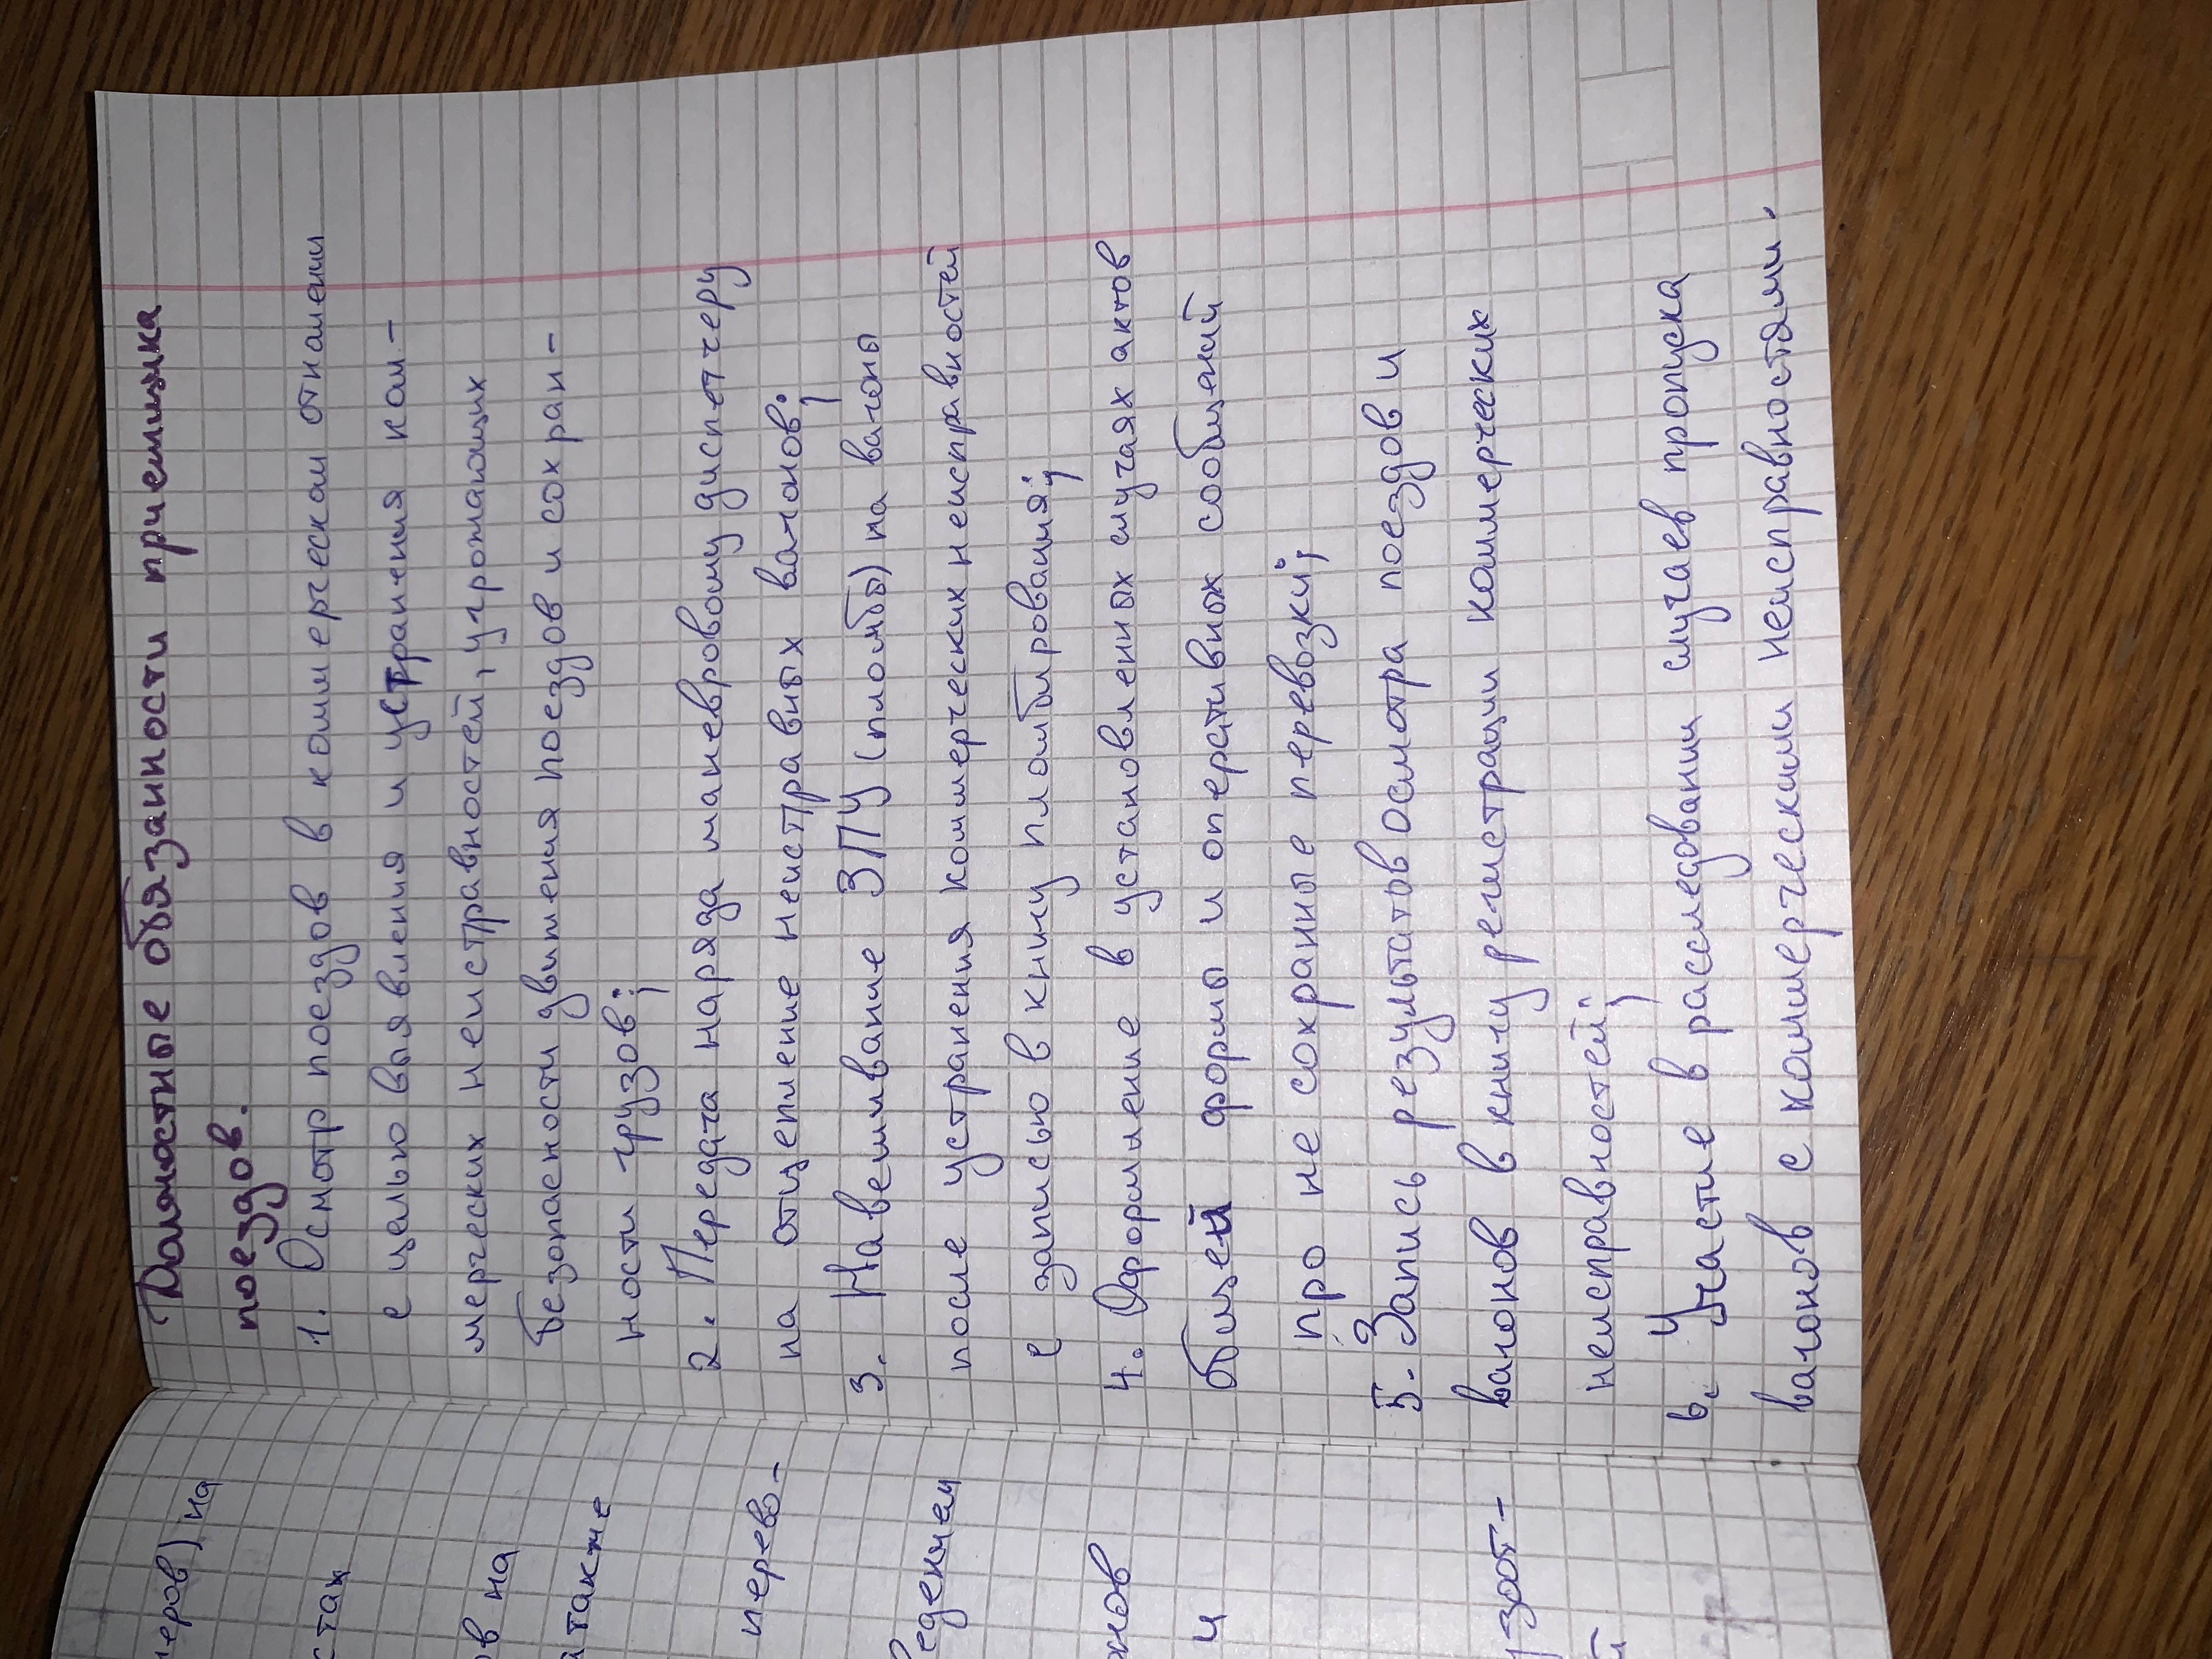 Должностные обязанности приемщика
поездов.
1. Осмотр поездов в коммерческом отношении
с целью выявления и устранения ком-
мерческих неисправностей, угрожающих
безопасности движения поездов и сохран-
ности грузов;
2. Передача наряда маневровому диспетчеру
на отцепление неисправных вагонов;
3. Навешивание ЗПУ (пломбы) на вагоны
после устранения коммерческих неисправностей
с записью в книгу пломбирования;
4. Оформление в установленных случаях актов
общей формы и оперативных сообщений
про не сохранные перевозки;
5. Запись результатов осмотра поездов и
вагонов в книгу регистрации коммерческих
неисправностей;
6. Участие в расследовании случаев пропуска
вагонов с коммерческими неисправностями.
неров) на
стах
ов на
а также
перево-
едением
нов
и
зот-
й